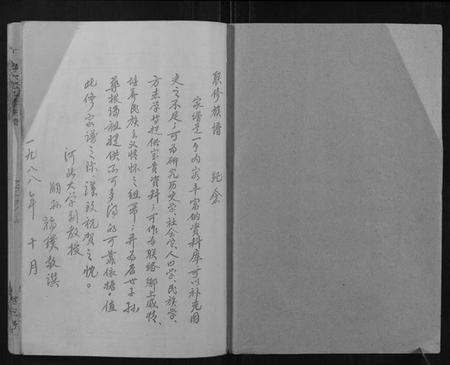 联修族谱 纪念
家谱是一个内容丰富的资料库,可以补充国
史之不足,可为研究历史学、社会学、人口学、民族学、
方志学等提供宝贵资料,可作为联络乡土感情、
培养民族主义情怀之纽带,并为后世子孙
寻根谒祖提供不可多得的可靠依据。值
此修家谱之际,谨致祝贺之忱。
河北大学副教授
敬撰
一九八八年 十月